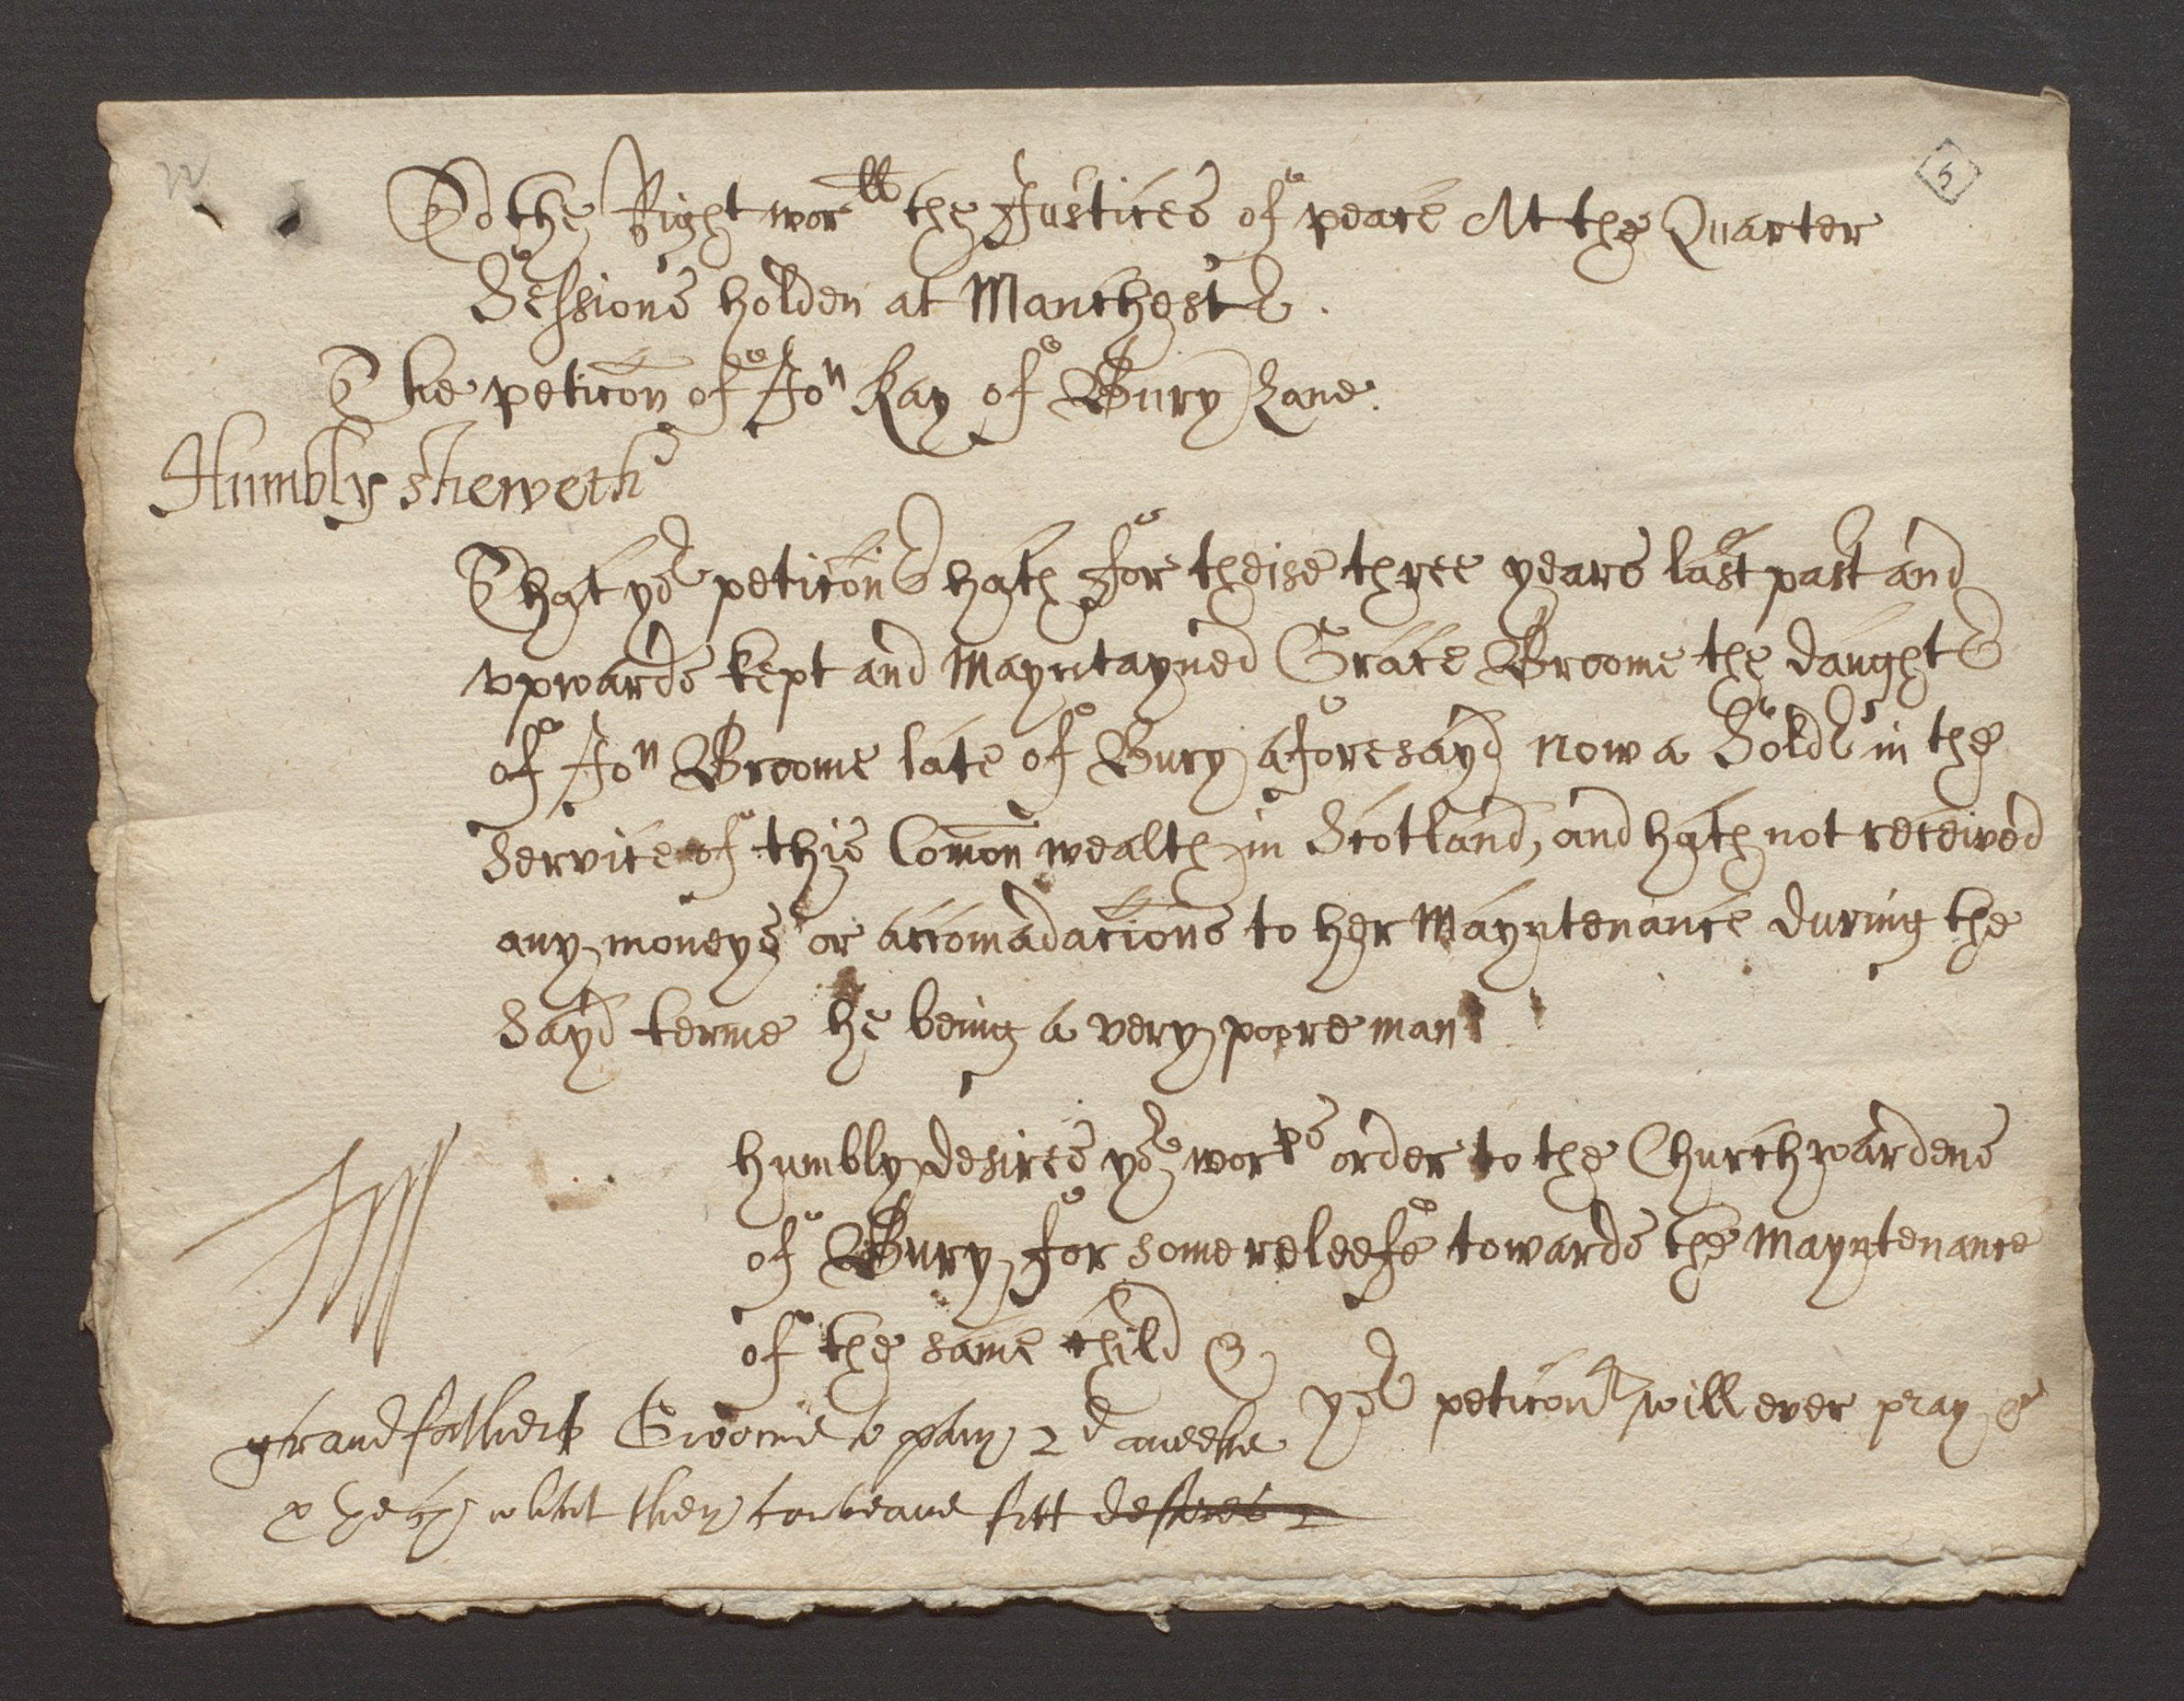 5
To the Right worll the Justices of peace At the Quarter
Sessions holden at Manchester.
The peticon of Jon Kay of Bury Lane.
Humbly sheweth
That yor peticoner hath for theise three years last past and
vpwards kept and Mayntayned Grace Broome the daughter
of Jon Broome late of Bury aforesayd now a Soldr in the
Service of this Comon wealth in Scotland, and hath not received
any moneys or accomadacions to her Mayntenance during the
Sayd terme he being a very poore man
humbly desires yor worps order to the Churchwardens
of Bury for some releefe towards the Mayntenance
of the same child &
yor peticonr will ever pray &
grandfather Broome to pay 2d a weeke
they can leave fitt